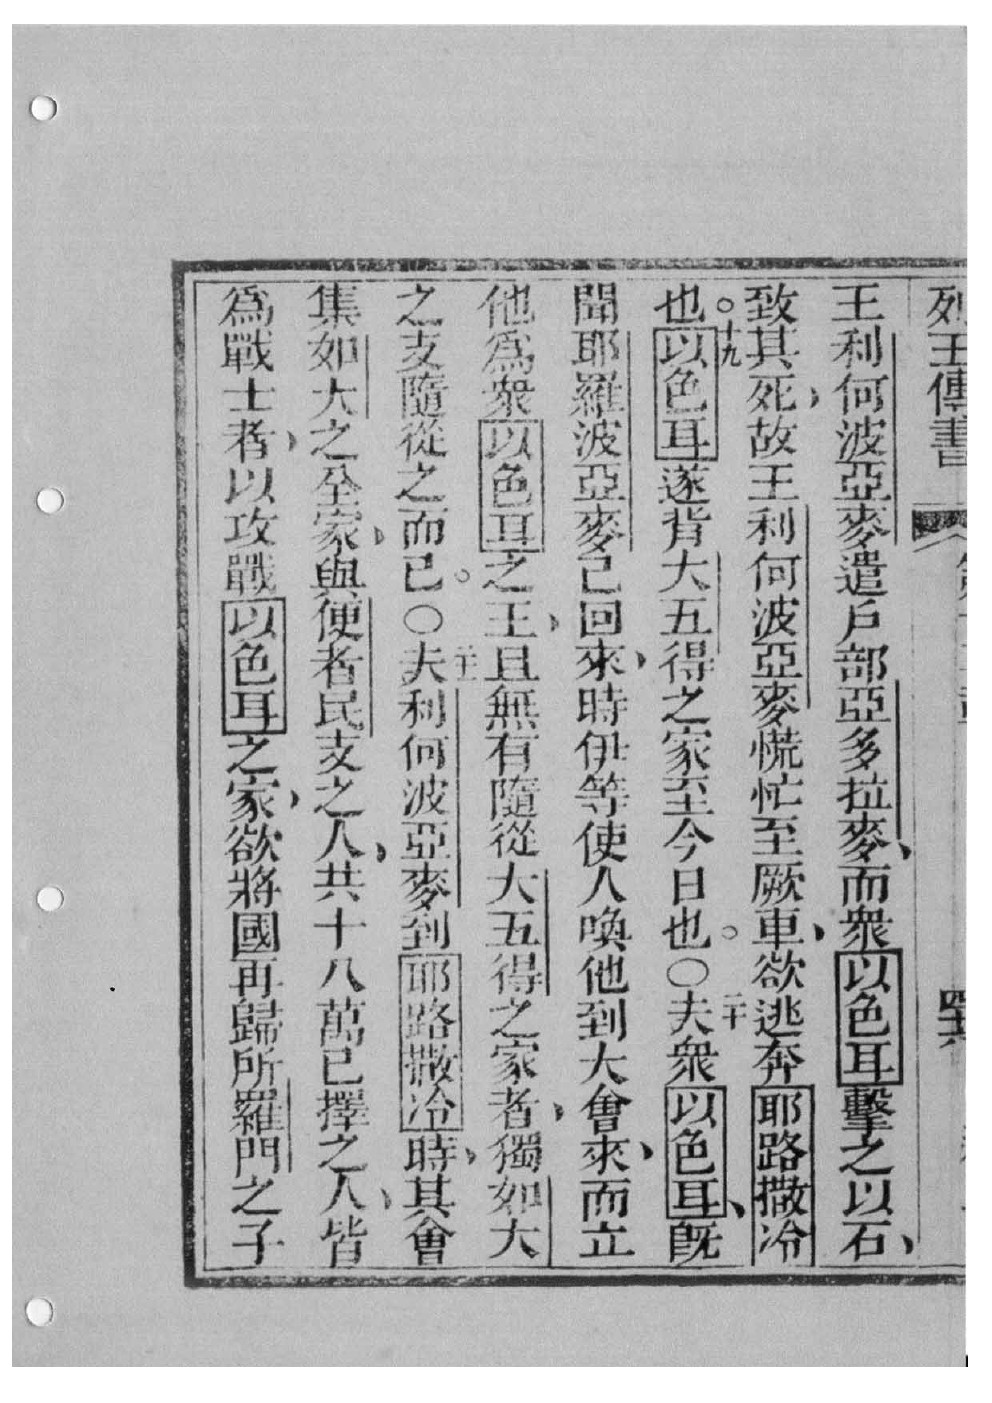 列王傳書
王利何波亞麥遣戶部亞多拉麥、而衆以色耳擊之以石、
致其死、故王利何波亞麥慌忙至厥車、欲逃奔耶路撒冷
也。十九以色耳遂背大五得之家至今日也。○二十夫衆以色耳、旣
聞耶羅波亞麥已回來、時伊等使人喚他到大會來、而立
他爲衆以色耳之王、且無有隨從大五得之家者、獨如大
之支隨從之而已。○二十一夫利何波亞麥到耶路撒冷時、其會
集如大之全家、與便者民支之人、共十八萬已擇之人、皆
爲戰士者、以攻戰以色耳之家、欲將國再歸所羅門之子